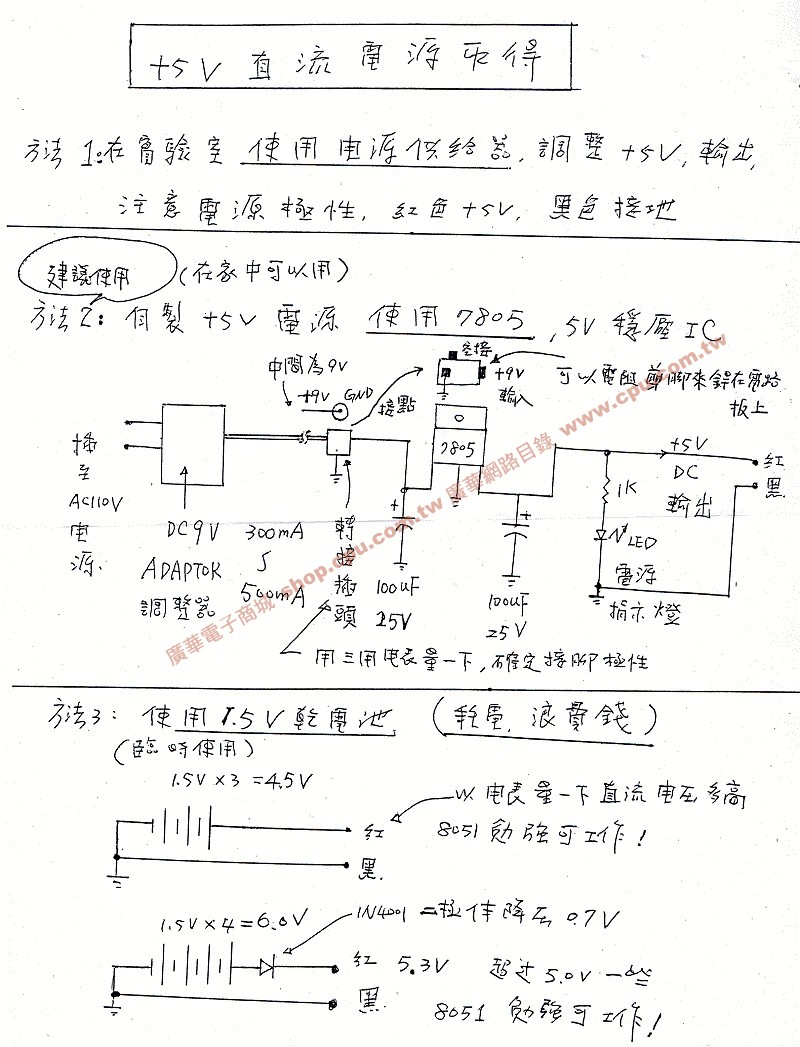 +5V 直流電源取得
方法1:在實驗室 使用电源供給器,調整+5V,輸出,
注意電源極性,紅色+5V,黑色接地
建議使用
(在家中可以用)
方法2:自製+5V電源 使用7805,5V穩壓IC
空接
+9V
輸入
可以電阻剪腳來銲在電路
板上
中間為9V
+9V
GND
接點
7805
插
至
AC110V
电
源
DC9V
ADAPTOR
調整器
300mA
500mA
轉
接
插
頭
+
100uF
25V
+
100uF
25V
1K
LED
電源
指示燈
+5V
DC
輸出
紅
黑
用三用电表量一下,確定接腳極性
方法3:使用1.5V乾電池 (耗電,浪費錢)
(臨時使用)
1.5V×3=4.5V
紅
黑.
以电表量一下直流电压多高
8051勉強可工作!
1.5V×4=6.0V
1N4001 二极体降压0.7V
紅 5.3V
黑.
超过5.0V一些
8051 勉強可工作!
廣華電子商城 shop.cpu.com.tw 廣華網路目錄 www.cpu.com.tw